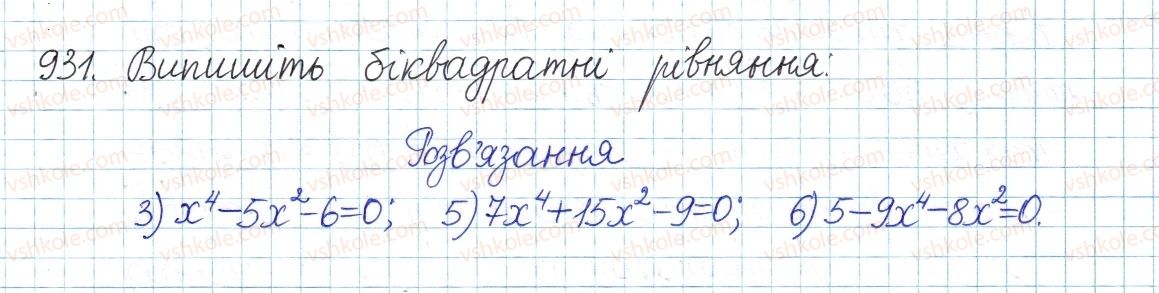 931. Випишіть біквадратні рівняння:
Розв'язання
3) x⁴-5x²-6=0; 5) 7x⁴+15x²-9=0; 6) 5-9x⁴-8x²=0.